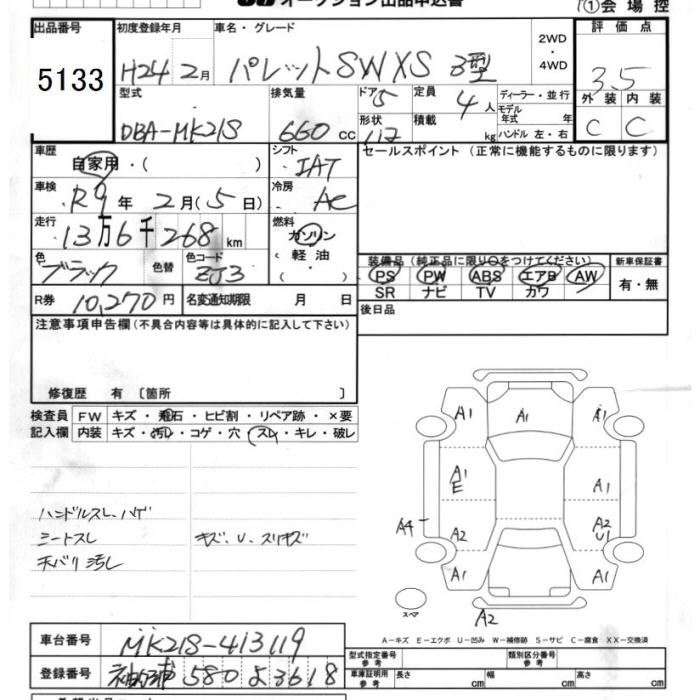 オークション出品申込書 ①会場控
出品番号 初度登録年月 車名・グレード 2WD・4WD 評価点
5133 H24 2月 パレットSW XS 3型 3.5
型式 排気量 ドア 定員 ディーラー・並行 外装 内装
DBA-MK21S 660 cc 5 4人 モデル年式 年 C C
形状 積載 kg ハンドル 左・右
車歴 自家用・( ) シフト IAT セールスポイント (正常に機能するものに限ります)
車検 R9年 2月(5日) 冷房 AC
走行 13万6千268km 燃料 ガソリン 軽油 ( ・ )
色 ブラック 色替 色コード ZJ3
装備品 (純正品に限り○をつけてください) 新車保証書
PS PW ABS エアB AW 有・無
SR ナビ TV カワ
R券 10,270円 名変通知期限 月 日 後日品
注意事項申告欄 (不具合内容等は具体的に記入して下さい)
修復歴 有 〔箇所 〕
検査員 FW キズ・飛石・ヒビ割・リペア跡・×要
記入欄 内装 キズ・汚レ・コゲ・穴・スレ・キレ・破レ
ハンドルスレ、ハゲ
シートスレ キズ、U、スリキズ
天バリ汚レ
A1 A1 A1
A1 E A1
A4 A2 A2 U1
A1 A1
スペア A2
A-キズ E-エクボ U-凹み W-補修跡 S-サビ C-腐食 XX-交換済
車台番号 MK21S-413119 型式指定番号 参考 類別区分番号 参考
登録番号 580 よ3618 車庫証明用 参考 長さ cm 幅 cm 高さ cm